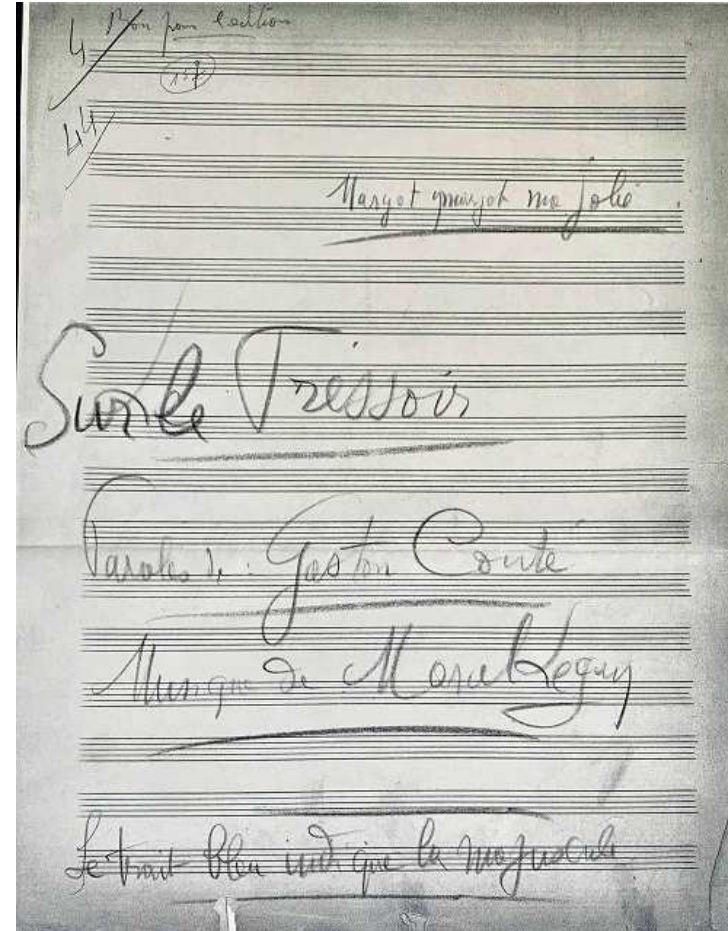 4 Bon pour l'edition
137
44
Margot margot ma jolie.
Sur le Tressoir
Paroles de : Gaston Couté
Musique de Marcel Legay
Le trait bleu indique la majuscule